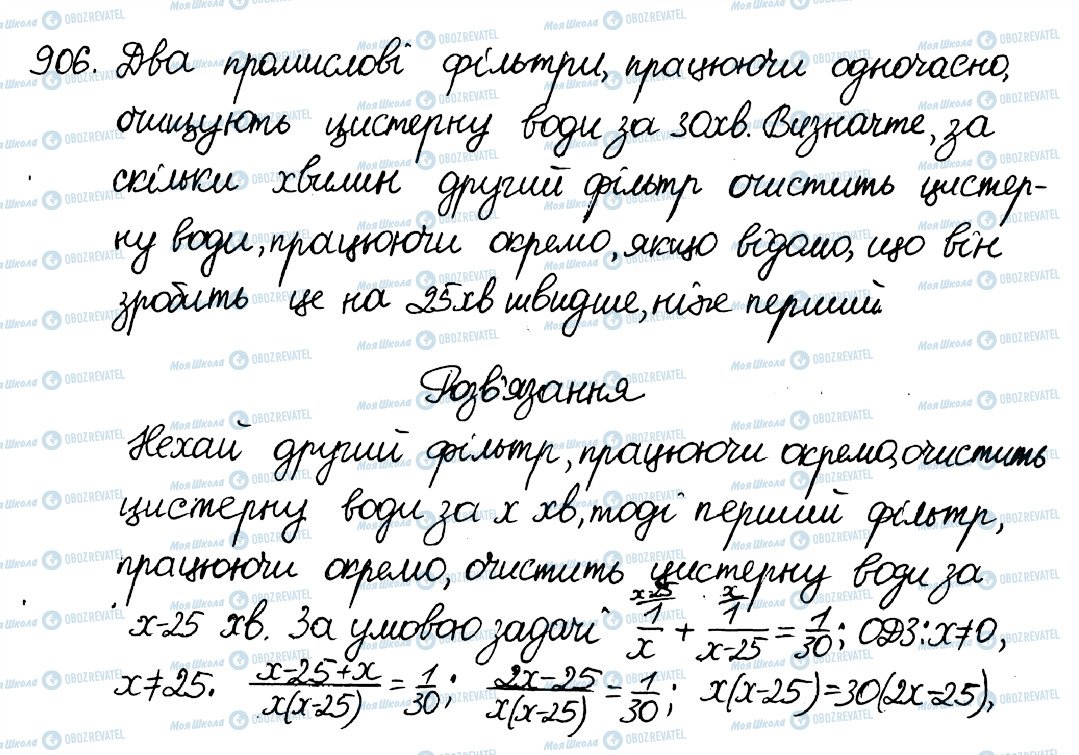 906. Два промислові фільтри, працюючи одночасно,
очищують цистерну води за 30хв. Визначте, за
скільки хвилин другий фільтр очистить цистер-
ну води, працюючи окремо, якщо відомо, що він
зробить це на 25хв швидше, ніж перший.
Розв'язання
Нехай другий фільтр, працюючи окремо, очистить
цистерну води за x хв, тоді перший фільтр,
працюючи окремо, очистить цистерну води за
x-25 хв. За умовою задачі x-25/ 1/x + x/ 1/(x-25) = 1/30; ОДЗ: x≠0,
x≠25. (x-25+x)/(x(x-25)) = 1/30; (2x-25)/(x(x-25)) = 1/30; x(x-25)=30(2x-25),